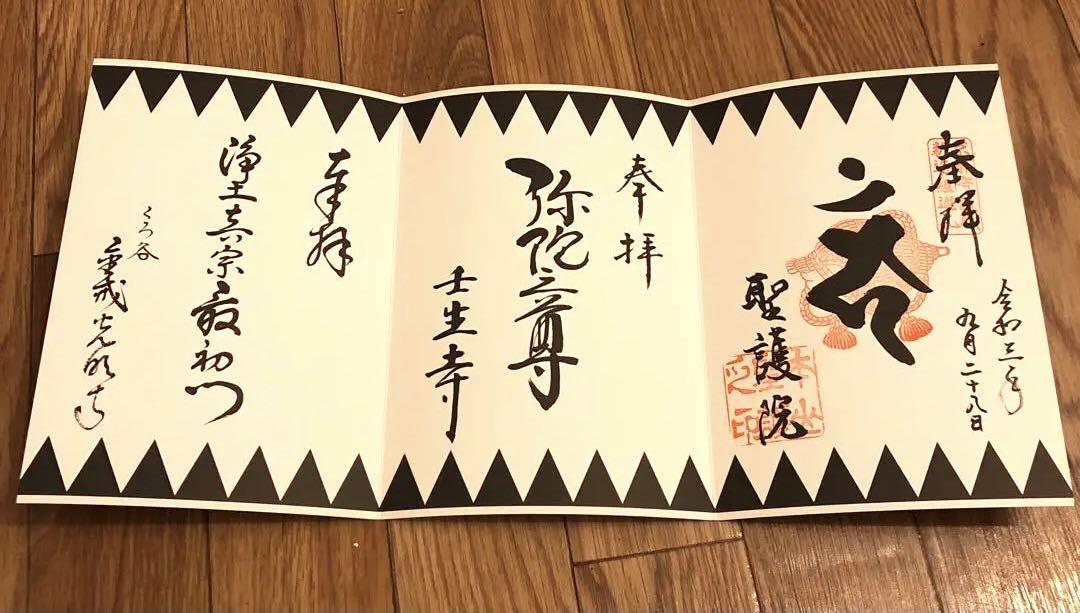 奉拝
令和三年
九月二十八日
聖護院
奉拝
弥陀三尊
壬生寺
奉拝
浄土真宗最初門
くろ谷
金戒光明寺